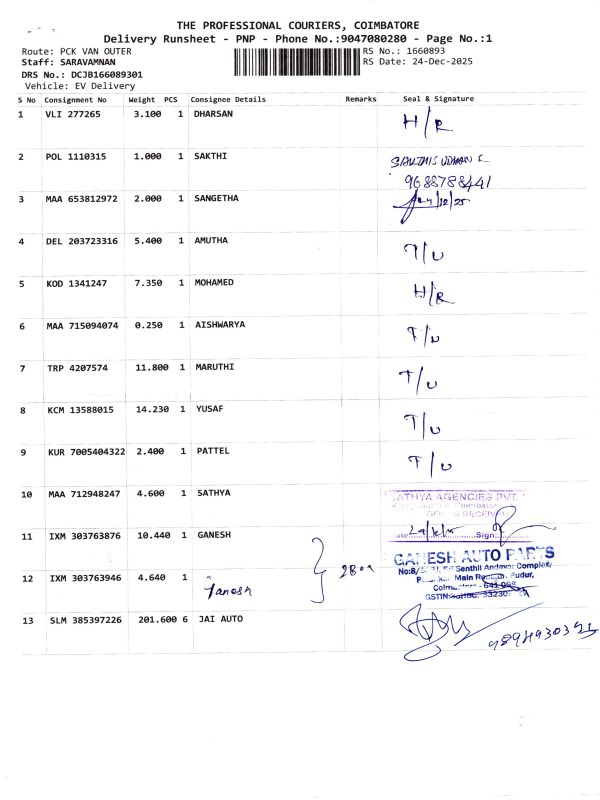 THE PROFESSIONAL COURIERS, COIMBATORE
Delivery Runsheet - PNP - Phone No.:9047080280 - Page No.:1
Route: PCK VAN OUTER RS No.: 1660893
Staff: SARAVAMNAN RS Date: 24-Dec-2025
DRS No.: DCJB166089301
Vehicle: EV Delivery
S No Consignment No Weight PCS Consignee Details Remarks Seal & Signature
1 VLI 277265 3.100 1 DHARSAN H/R
2 POL 1110315 1.000 1 SAKTHI
9688788441
3 MAA 653812972 2.000 1 SANGETHA 24/12/25
4 DEL 203723316 5.400 1 AMUTHA T/U
5 KOD 1341247 7.350 1 MOHAMED H/R
6 MAA 715094074 0.250 1 AISHWARYA T/U
7 TRP 4207574 11.800 1 MARUTHI T/U
8 KCM 13588015 14.230 1 YUSAF T/U
9 KUR 7005404322 2.400 1 PATTEL T/U
10 MAA 712948247 4.600 1 SATHYA
SATHYA AGENCIES PVT.
GOODS RECEIVED
Sign
11 IXM 303763876 10.440 1 GANESH
GANESH AUTO PARTS
Senthil Andavar Complex
Main Pudur,
12 IXM 303763946 4.640 1 Ganesh
Coimbatore - 641 098
GSTIN
13 SLM 385397226 201.600 6 JAI AUTO